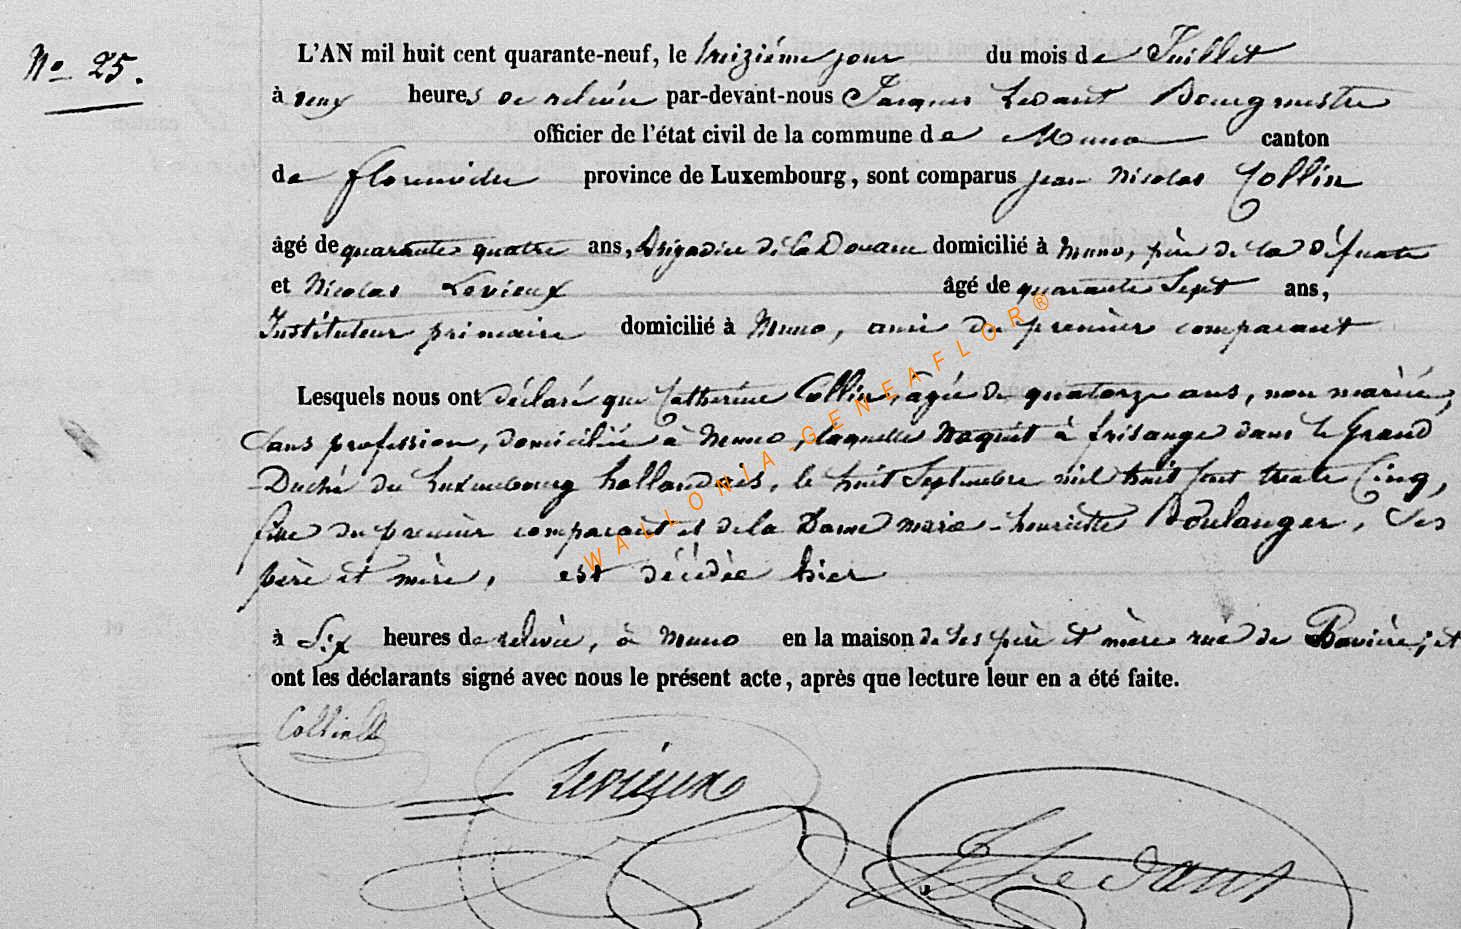 N° 25.
L'AN mil huit cent quarante-neuf, le treizième jour du mois de Juillet
à deux heures de relevée par-devant-nous Jacques Ledant Bourgmestre
officier de l'état civil de la commune de Muno canton
de Florenville province de Luxembourg, sont comparus Jean Nicolas Collin
âgé de quarante quatre ans, Brigadier de la Douane domicilié à Muno, père de la défunte
et Nicolas Levieux âgé de quarante Sept ans,
Instituteur primaire domicilié à Muno, ami du premier comparant
Lesquels nous ont déclaré que Catherine Collin, âgée de quatorze ans, non mariée,
Sans profession, domiciliée à Muno, laquelle Naquit à frisange dans le Grand
Duché du Luxembourg hollandais, le huit Septembre mil huit Cent trente Cinq,
fille du premier comparant et de la Dame marie-henriette Boulanger, Ses
père et mère, est décédée hier
à Six heures de relevée, à Muno en la maison de Ses père et mère rue de Bavière; et
ont les déclarants signé avec nous le présent acte, après que lecture leur en a été faite.
Collin
Levieux
J Ledant
WALLONIA-GENEAFLOR®